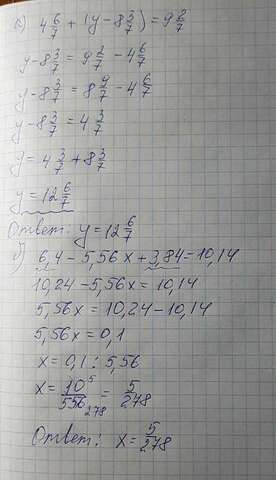 а) 4 6/7 + (y - 8 3/7) = 9 2/7
y - 8 3/7 = 9 2/7 - 4 6/7
y - 8 3/7 = 8 9/7 - 4 6/7
y - 8 3/7 = 4 3/7
y = 4 3/7 + 8 3/7
y = 12 6/7
Ответ: y = 12 6/7
б) 6,4 - 5,56x + 3,84 = 10,14
10,24 - 5,56x = 10,14
5,56x = 10,24 - 10,14
5,56x = 0,1
x = 0,1 : 5,56
x = 10 5/556 278 = 5/278
Ответ: x = 5/278